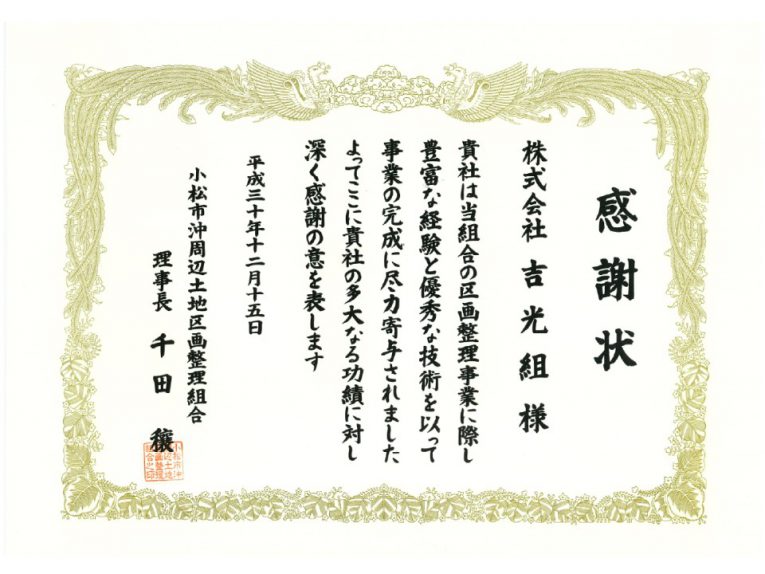 感謝状
株式会社 吉光組 様
貴社は当組合の区画整理事業に際し
豊富な経験と優秀な技術を以って
事業の完成に尽力寄与されました
よってここに貴社の多大なる功績に対し
深く感謝の意を表します
平成三十年十二月十五日
小松市沖周辺土地区画整理組合
理事長 千田 穰